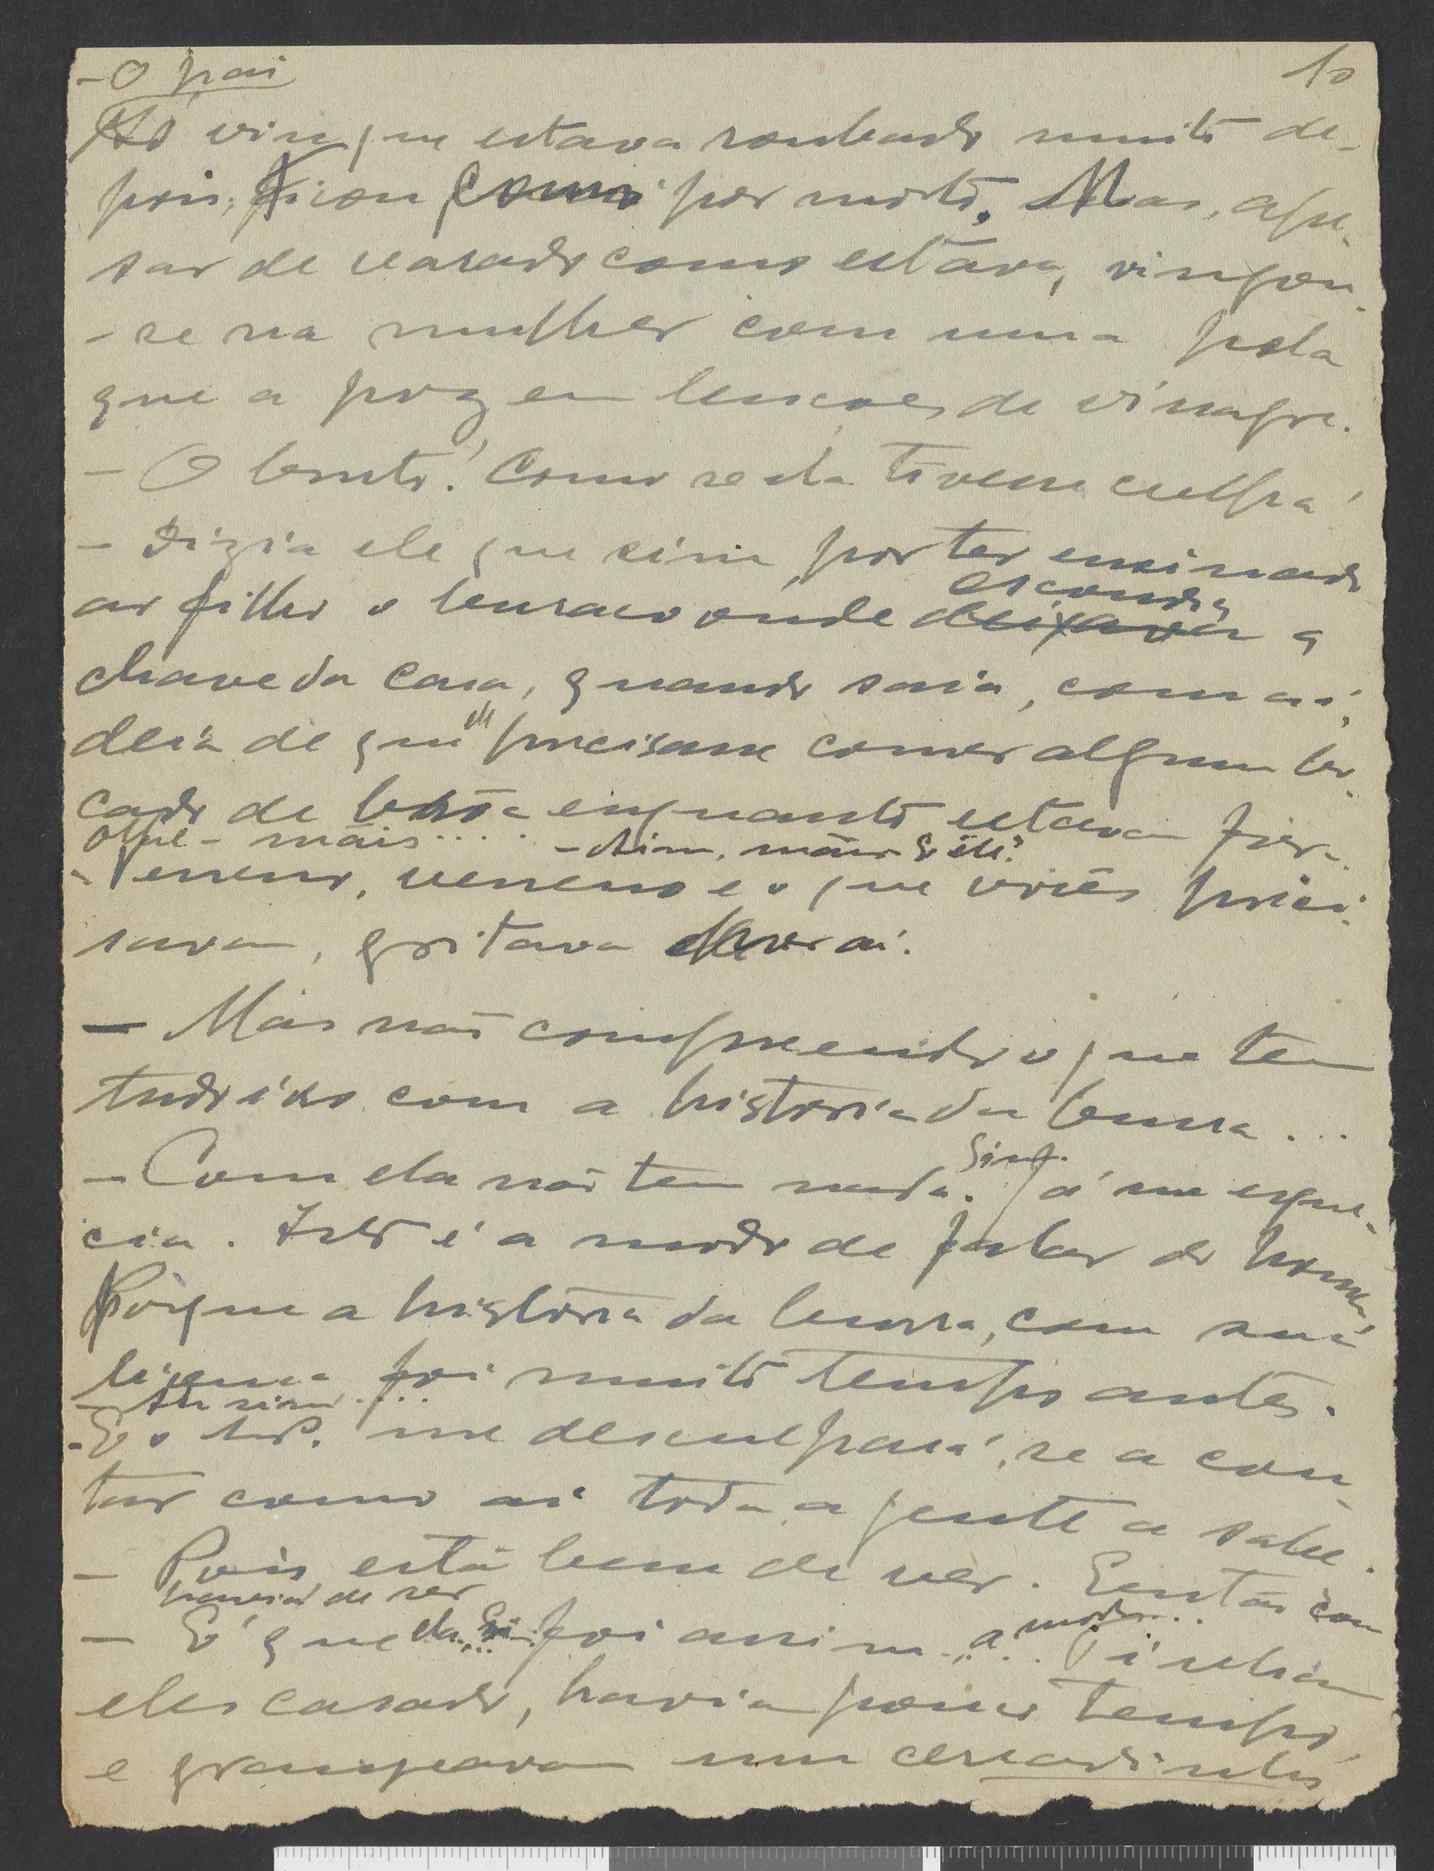 - O pai
10
Só viu que estava roubado muito de-
pois. Ficou como por morto. Mas, ape-
sar de varado como estava, vingou-
-se na mulher com uma
que a poz em lençoes de vinagre.
- O bruto! Como se ela tivesse culpa!
- Dizia ele que sim, por ter ensinado
escondia
ao filho o buraco onde deixava a
chave da casa, quando saía, com a i-
ele
deia de que precisasse comer algum bo-
cado de brôa enquanto estava fóra.
O que - mais..... - Sim, mais é ele?
- Veneno, veneno é o que vocês preci-
savam, gritava
- Mas não compreendo o que tem
tudo isso com a historia da burra...
Sim.
- Com ela não tem nada. Já me esque-
cia. Isto é a modo de falar do homem
Porque a história da burra, com sua
licença foi muito tempo antes.
- Ah sim....
- E o snr. me desculpará, se a con-
tar como aí toda a gente a sabe.
- Pois está bem de ver. Então com
havia de ser
ela... modo...
- É que foi assim... a Tinham
eles casado, havia pouco tempo,
e grangeavam um cercadinho